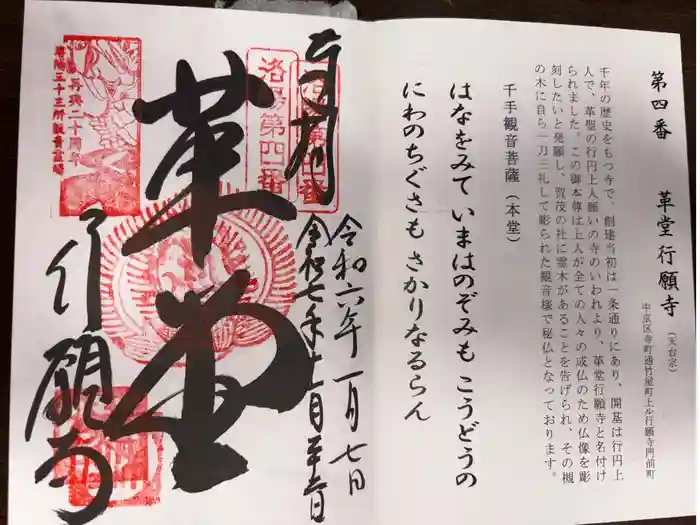 第四番　革堂行願寺（天台宗）
中京区寺町通竹屋町上ル行願寺門前町
千年の歴史をもつ寺で、創建当初は一条通りにあり、開基は行円上
人で、革聖の行円上人願いの寺のいわれより、革堂行願寺と名付け
られました。この御本尊は上人が全ての人々の成仏のため仏像を彫
刻したいと発願し、賀茂の社に霊木があることを告げられ、その槻
の木に自ら一刀三礼して彫られた観音様で秘仏となっております。
千手観音菩薩（本堂）
はなをみて いまはのぞみも こうどうの
にわのちぐさも さかりなるらん
令和六年一月七日
奉拝
洛陽第四番
革堂
行願寺
再興二十周年
洛陽三十三所観音霊場